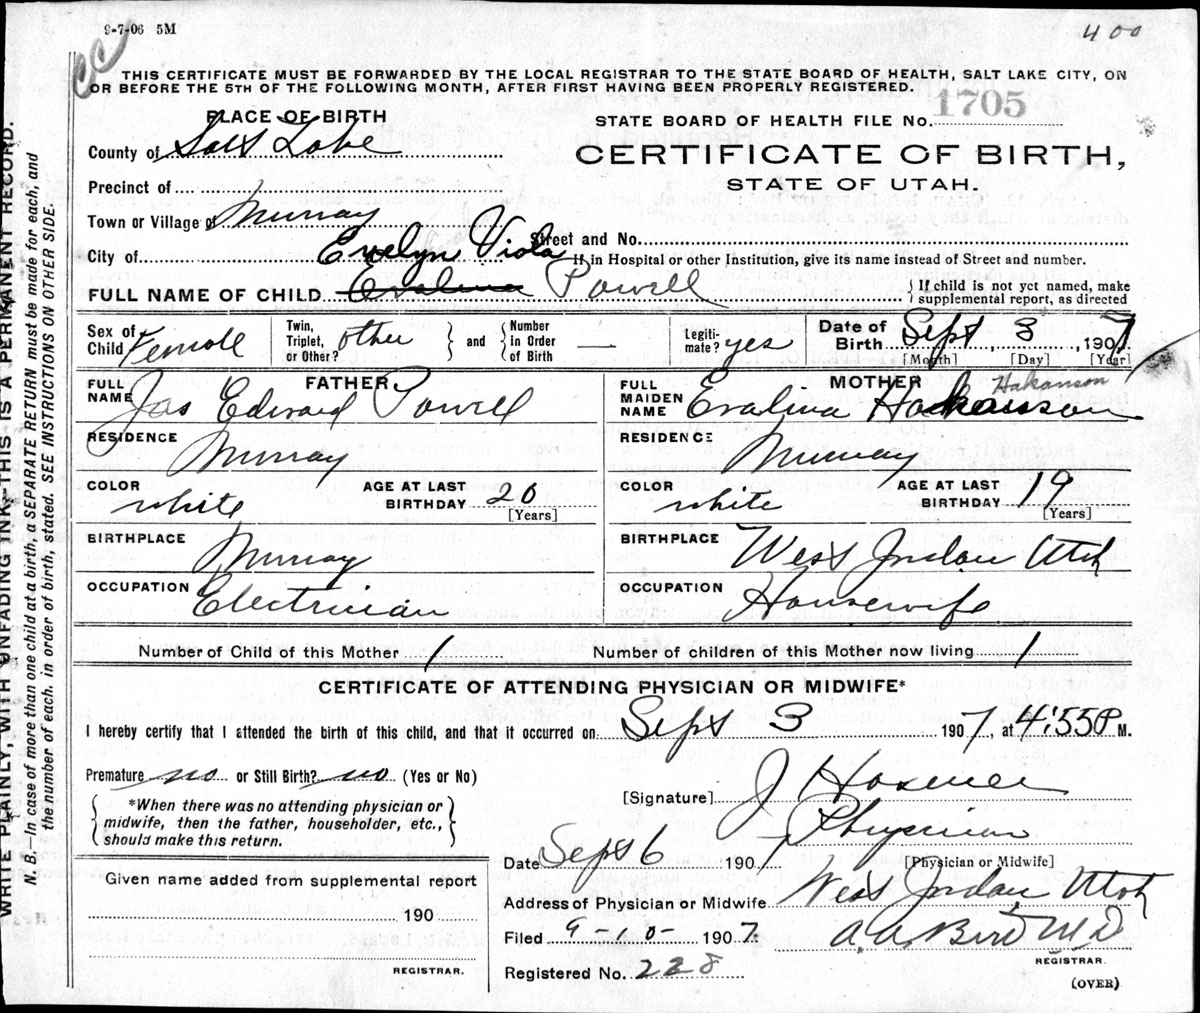 9-7-06 5M
400
CC
THIS CERTIFICATE MUST BE FORWARDED BY THE LOCAL REGISTRAR TO THE STATE BOARD OF HEALTH, SALT LAKE CITY, ON
OR BEFORE THE 5TH OF THE FOLLOWING MONTH, AFTER FIRST HAVING BEEN PROPERLY REGISTERED.
PLACE OF BIRTH
STATE BOARD OF HEALTH FILE No. 1705
County of Salt Lake
CERTIFICATE OF BIRTH,
STATE OF UTAH.
Precinct of
Town or Village of Murray
Street and No.
City of
If in Hospital or other Institution, give its name instead of Street and number.
Evelyn Viola
FULL NAME OF CHILD Evalina Powell
{ If child is not yet named, make
supplemental report, as directed
Sex of Child Female
Twin, Triplet, or Other? other } and { Number in Order of Birth —
Legiti-mate? yes
Date of Birth Sept 3, 1907
[Month] [Day] [Year]
FATHER
FULL NAME Jas Edward Powell
MOTHER
FULL MAIDEN NAME Evalina Hakanson
Hakanson
RESIDENCE Murray
RESIDENCE Murray
COLOR white
AGE AT LAST BIRTHDAY 20 [Years]
COLOR white
AGE AT LAST BIRTHDAY 19 [Years]
BIRTHPLACE Murray
BIRTHPLACE West Jordan Utah
OCCUPATION Electrician
OCCUPATION Housewife
Number of Child of this Mother 1
Number of children of this Mother now living 1
CERTIFICATE OF ATTENDING PHYSICIAN OR MIDWIFE*
I hereby certify that I attended the birth of this child, and that it occurred on Sept 3 1907, at 4:55 P M.
Premature no or Still Birth? no (Yes or No)
{ *When there was no attending physician or
midwife, then the father, householder, etc.,
should make this return. }
[Signature] J
Physician
[Physician or Midwife]
Date Sept 6 1907
Address of Physician or Midwife West Jordan Utah
Filed 9-10- 1907.
A. A. Bird M D
REGISTRAR.
Registered No. 228
(OVER)
Given name added from supplemental report
190
REGISTRAR.
WRITE PLAINLY, WITH UNFADING INK—THIS IS A PERMANENT RECORD.
N. B.—In case of more than one child at a birth a SEPARATE RETURN must be made for each, and
the number of each, in order of birth, stated. SEE INSTRUCTIONS ON OTHER SIDE.